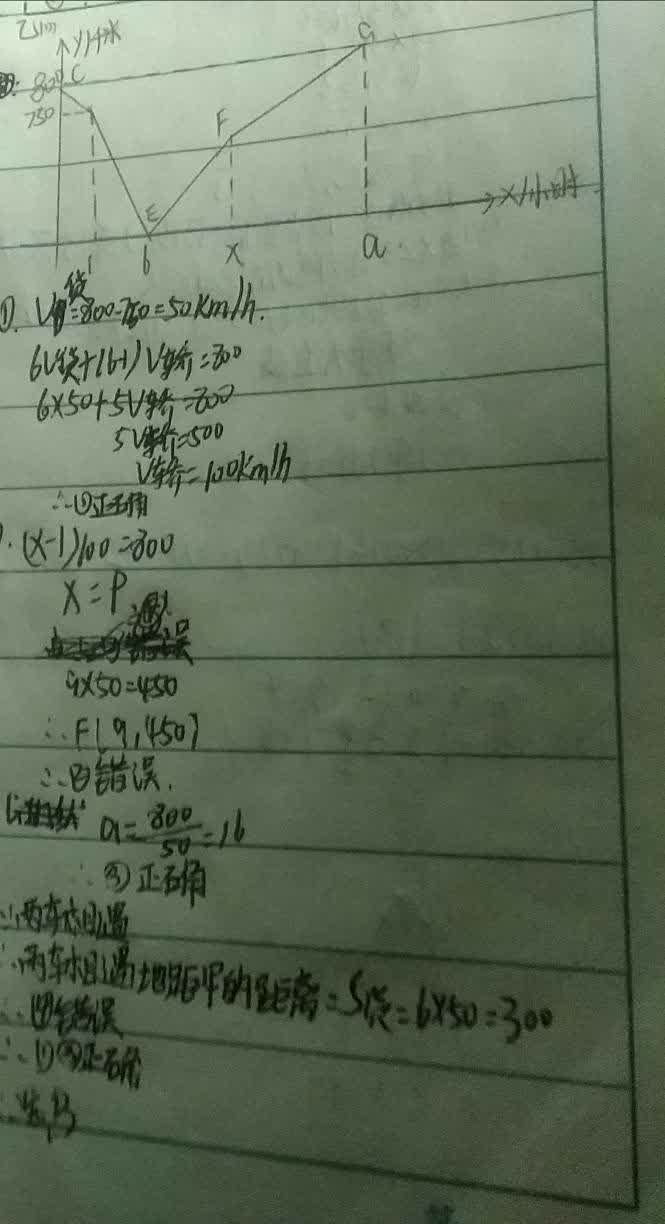 y/千米
800 C
750
G
F
E
x/小时
1 6 x a
①. V货=800-750=50km/h.
6V货+(6-1)V轿=800
6×50+5V轿=800
5V轿=500
V轿=100km/h
∴①正确
(x-1)100=800
x=9
9×50=450
∴F(9,450)
∴②错误.
a=800/50=16
∴③正确
∴两车相遇
∴两车相遇地距甲的距离=S货=6×50=300
∴④错误
∴①③正确
∴选B